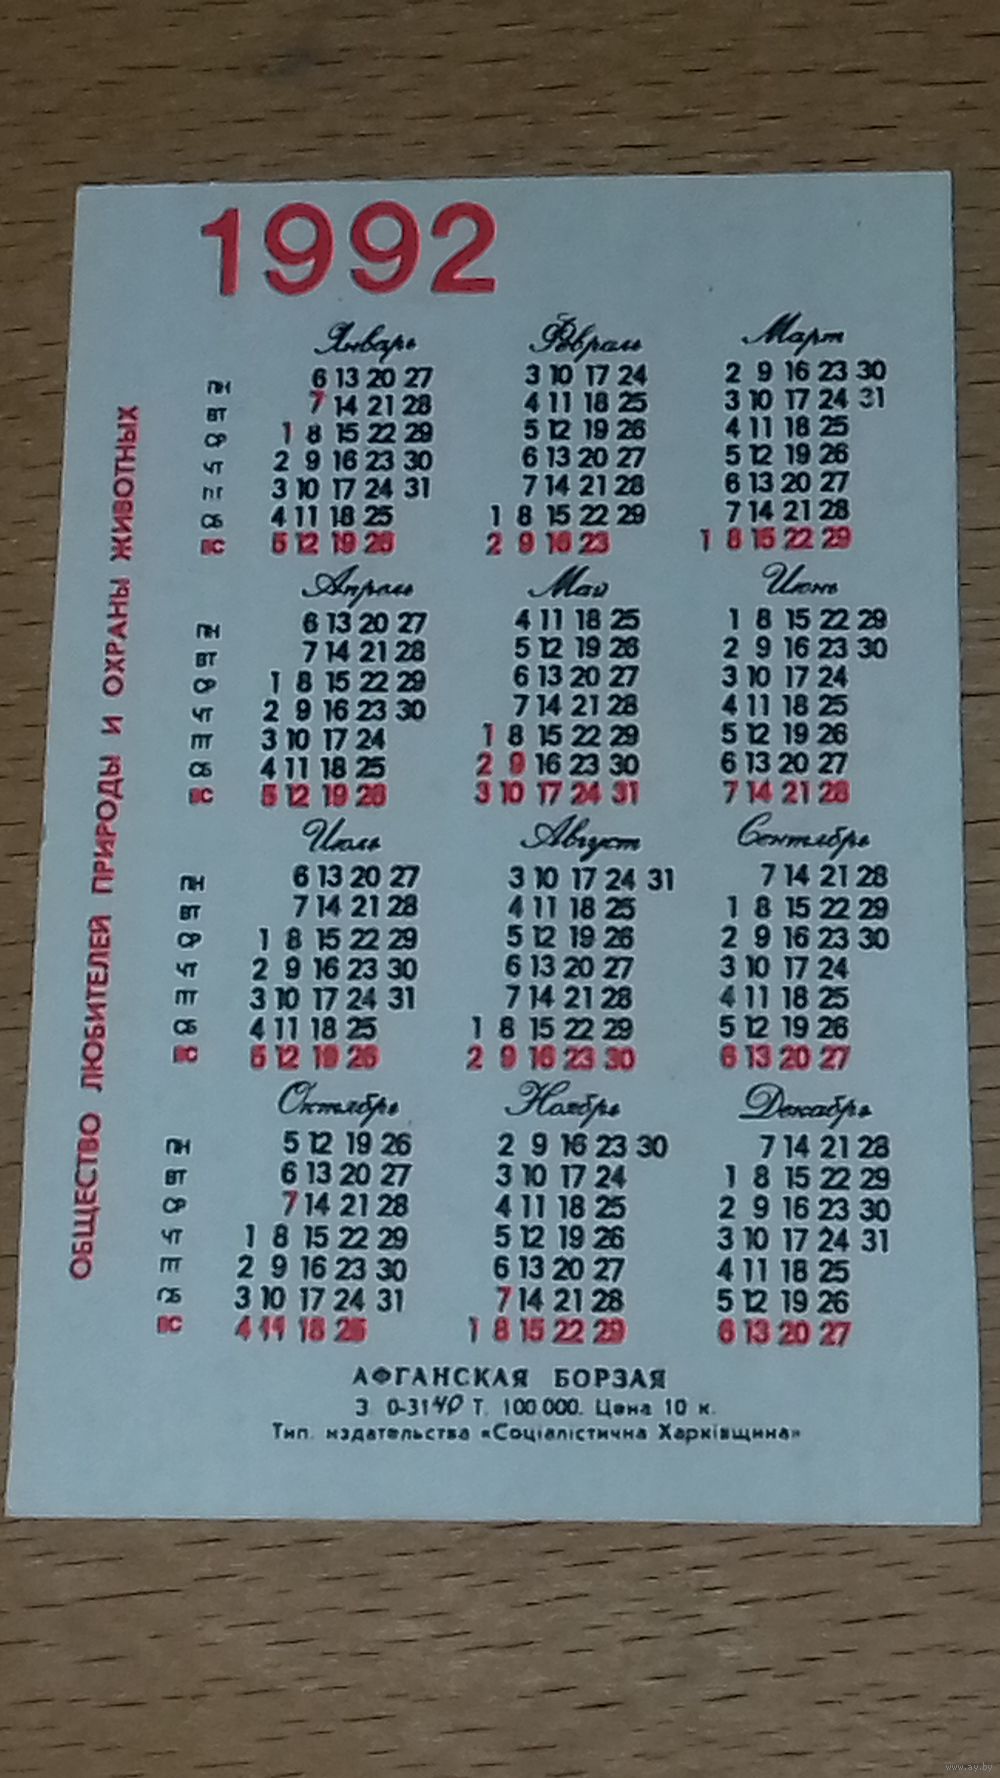 1992
ОБЩЕСТВО ЛЮБИТЕЛЕЙ ПРИРОДЫ И ОХРАНЫ ЖИВОТНЫХ
Январь Февраль Март
ПН 6 13 20 27 3 10 17 24 2 9 16 23 30
ВТ 7 14 21 28 4 11 18 25 3 10 17 24 31
СР 1 8 15 22 29 5 12 19 26 4 11 18 25
ЧТ 2 9 16 23 30 6 13 20 27 5 12 19 26
ПТ 3 10 17 24 31 7 14 21 28 6 13 20 27
СБ 4 11 18 25 1 8 15 22 29 7 14 21 28
ВС 5 12 19 26 2 9 16 23 1 8 15 22 29
Апрель Май Июнь
ПН 6 13 20 27 4 11 18 25 1 8 15 22 29
ВТ 7 14 21 28 5 12 19 26 2 9 16 23 30
СР 1 8 15 22 29 6 13 20 27 3 10 17 24
ЧТ 2 9 16 23 30 7 14 21 28 4 11 18 25
ПТ 3 10 17 24 1 8 15 22 29 5 12 19 26
СБ 4 11 18 25 2 9 16 23 30 6 13 20 27
ВС 5 12 19 26 3 10 17 24 31 7 14 21 28
Июль Август Сентябрь
ПН 6 13 20 27 3 10 17 24 31 7 14 21 28
ВТ 7 14 21 28 4 11 18 25 1 8 15 22 29
СР 1 8 15 22 29 5 12 19 26 2 9 16 23 30
ЧТ 2 9 16 23 30 6 13 20 27 3 10 17 24
ПТ 3 10 17 24 31 7 14 21 28 4 11 18 25
СБ 4 11 18 25 1 8 15 22 29 5 12 19 26
ВС 5 12 19 26 2 9 16 23 30 6 13 20 27
Октябрь Ноябрь Декабрь
ПН 5 12 19 26 2 9 16 23 30 7 14 21 28
ВТ 6 13 20 27 3 10 17 24 1 8 15 22 29
СР 7 14 21 28 4 11 18 25 2 9 16 23 30
ЧТ 1 8 15 22 29 5 12 19 26 3 10 17 24 31
ПТ 2 9 16 23 30 6 13 20 27 4 11 18 25
СБ 3 10 17 24 31 7 14 21 28 5 12 19 26
ВС 4 11 18 25 1 8 15 22 29 6 13 20 27
АФГАНСКАЯ БОРЗАЯ
З. 0-3140 Т. 100 000. Цена 10 к.
Тип. издательства «Соціалістична Харківщина»
www.ay.by